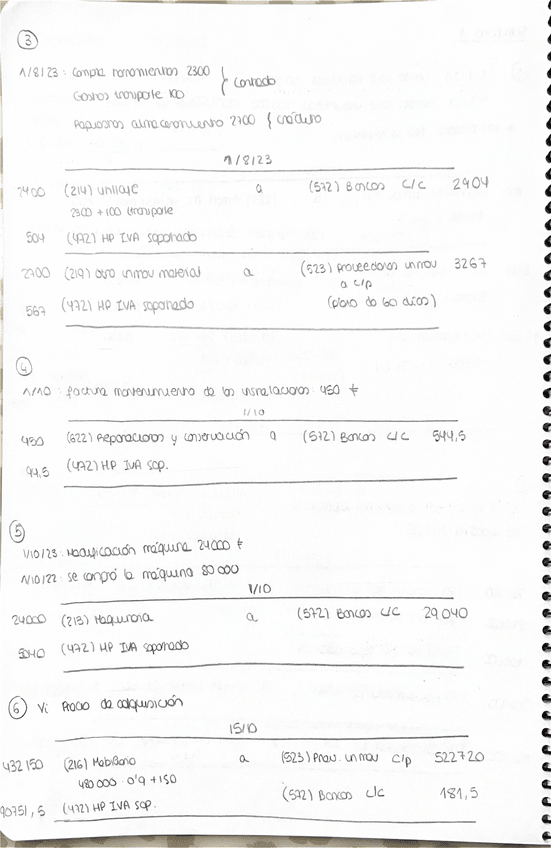 3
1/8/23: Compra herramientas 2300 } Contado
Gastos transporte 100
Repuestos almacenamiento 2700 { crédito
1/8/23
2400 (214) Utillaje a (572) Bancos c/c 2904
2300 + 100 transporte
504 (472) HP IVA soportado
2700 (219) otro inmov material a (523) Proveedores inmov 3267
a c/p
567 (472) HP IVA soportado (plazo de 60 días)
4
1/10: factura mantenimiento de las instalaciones: 450 €
1/10
450 (622) Reparaciones y conservación a (572) Bancos c/c 544,5
94,5 (472) HP IVA sop.
5
1/10/23: Modificación máquina 24000 €
1/10/22: se compró la máquina 80 000
1/10
24000 (213) Maquinaria a (572) Bancos c/c 29040
5040 (472) HP IVA soportado
6 Vi Precio de adquisición
15/10
432150 (216) Mobiliario a (523) Prov. inmov c/p 522720
480 000 · 0'9 + 150
(572) Bancos c/c 181,5
90751,5 (472) HP IVA sop.